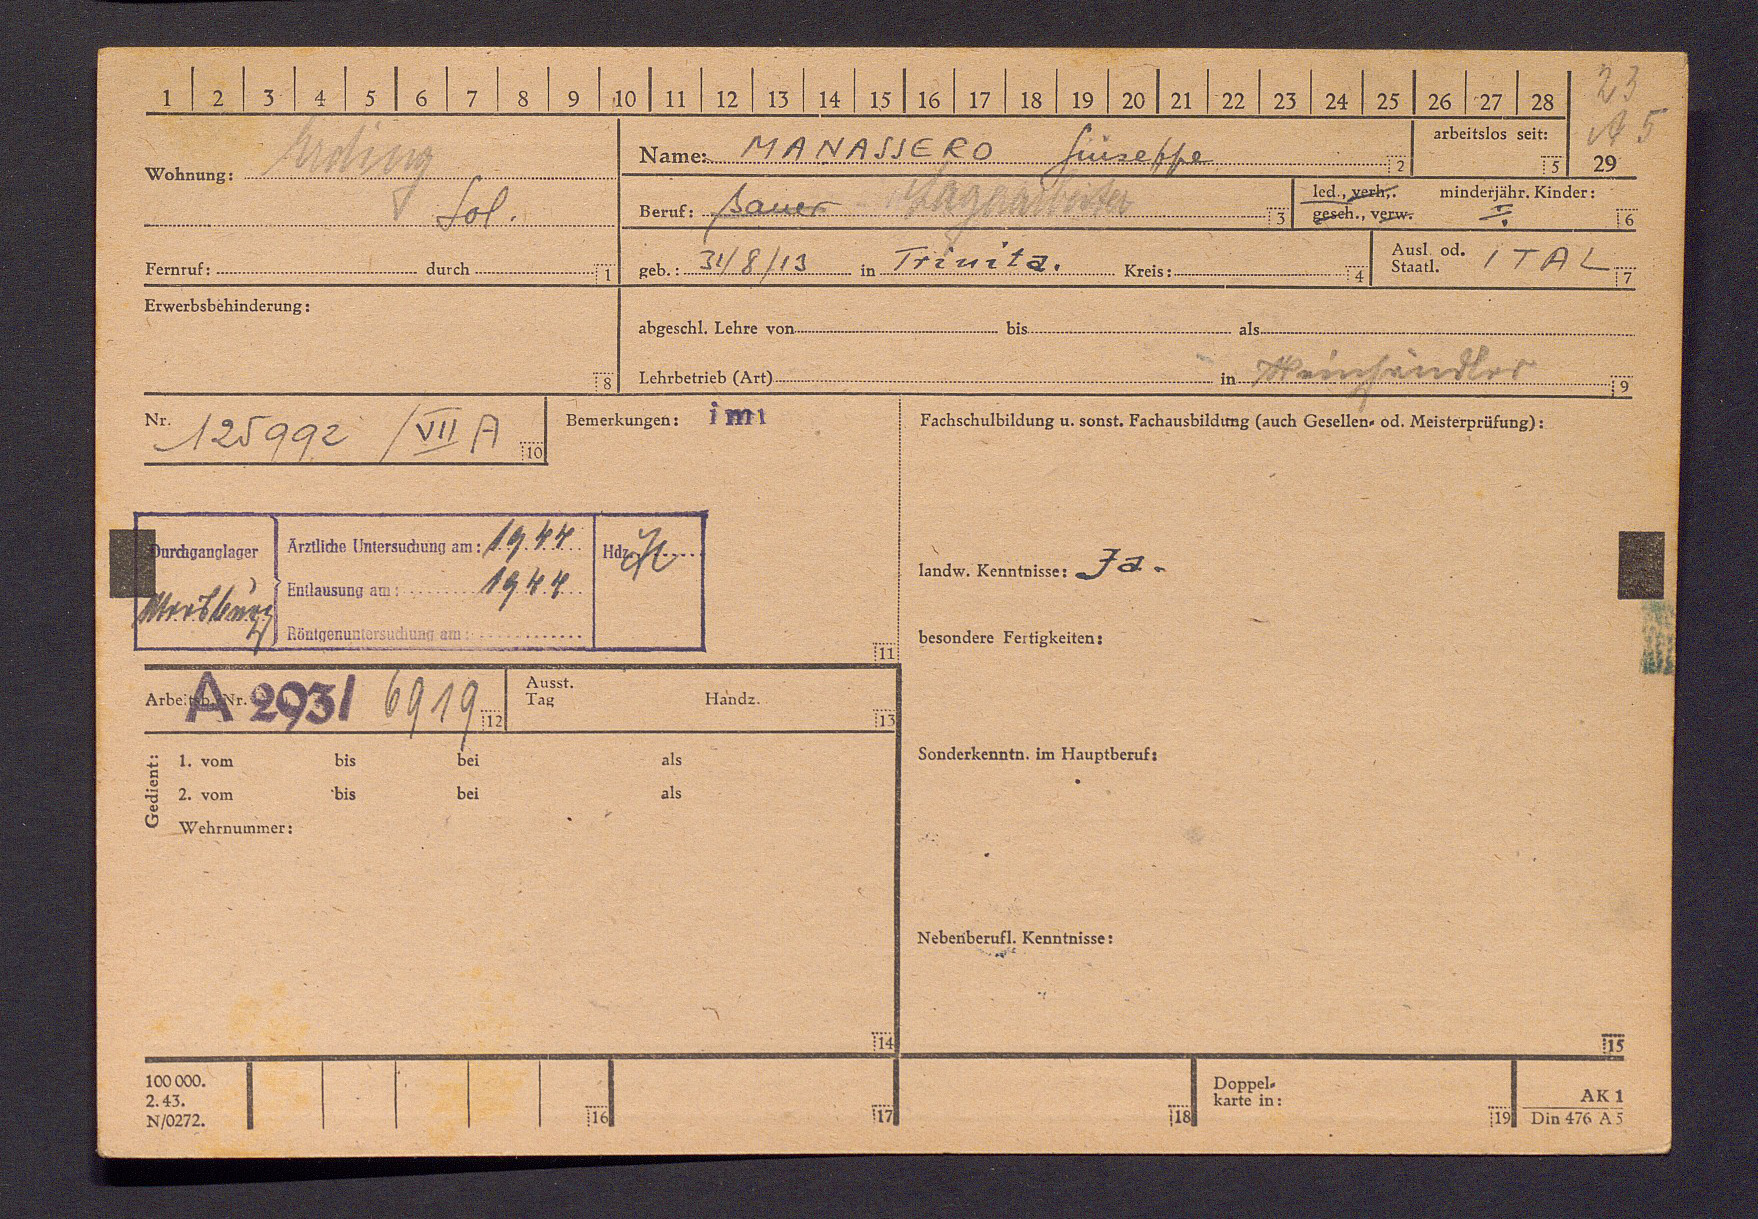 1 2 3 4 5 6 7 8 9 10 11 12 13 14 15 16 17 18 19 20 21 22 23 24 25 26 27 28
23
A 5
29
Wohnung: Erding
Sol.
Fernruf: durch 1
Name: MANASSERO Giuseppe 2
arbeitslos seit: 5
Beruf: Bauer Lagerarbeiter 3
led., verh., gesch., verw.
minderjähr. Kinder: 6
geb.: 31/8/13 in Trinita. Kreis: 4
Ausl. od. Staatl. ITAL 7
Erwerbsbehinderung: 8
abgeschl. Lehre von bis als
Lehrbetrieb (Art) in Weinhändler 9
Nr. 125992 /VII A 10
Bemerkungen: imi
11
Durchganglager
Ärztliche Untersuchung am: 1944
Entlausung am: 1944
Röntgenuntersuchung am:
Hdz.
Fachschulbildung u. sonst. Fachausbildung (auch Gesellen- od. Meisterprüfung):
landw. Kenntnisse: Ja.
besondere Fertigkeiten:
Sonderkenntn. im Hauptberuf:
Nebenberufl. Kenntnisse:
15
Arbeitsb. Nr. A 293/ 6919 12
Ausst. Tag Handz. 13
Gedient:
1. vom bis bei als
2. vom bis bei als
Wehrnummer:
14
100 000.
2. 43.
N/0272.
16 17 18
Doppel-
karte in: 19
AK 1
Din 476 A 5